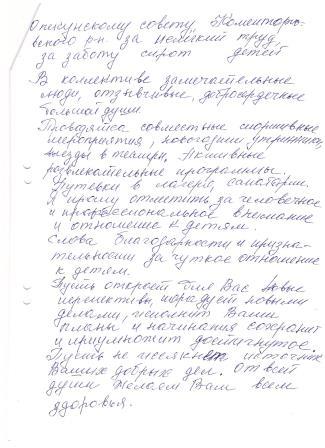 опекунскому совету Коминтер-
вского р-н за нелёгкий труд,
за заботу сирот детей
В коллективе замечательные
люди, отзывчивые, добросердечные
большой души.
Проводятся совместные спортивные
мероприятия, новогодние утренники,
выезды в театры,
развлекательные программы,
Путевки в лагерь, санатории.
Я прошу отметить за человечное
и профессиональное внимание
и отношение к детям.
Слова благодарности и призна-
тельности за чуткое отношение
к детям.
Пусть откроет для Вас новые
перспективы, порадует новыми
делами, исполнит Ваши
планы и начинания сохранит
и приумножит достигнутое.
Пусть не иссякнет источник
Ваших добрых дел. От всей
души желаем Вам всем
здоровья.